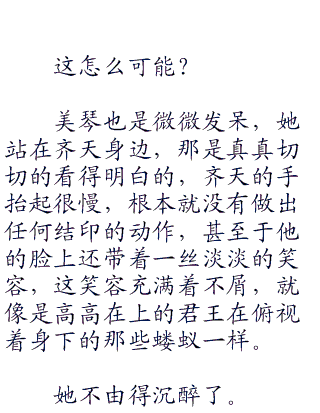 这怎么可能？
美琴也是微微发呆，她
站在齐天身边，那是真真切
切的看得明白的，齐天的手
抬起很慢，根本就没有做出
任何结印的动作，甚至于他
的脸上还带着一丝淡淡的笑
容，这笑容充满着不屑，就
像是高高在上的君王在俯视
着身下的那些蝼蚁一样。
她不由得沉醉了。